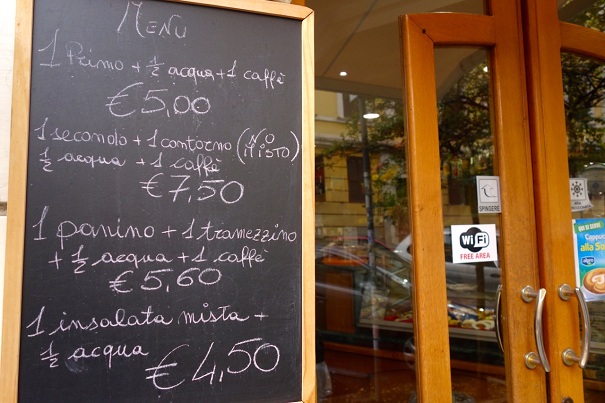 Menu
1 Primo + ½ acqua + 1 caffè
€ 5,00
1 secondo + 1 contorno (NO MISTO)
½ acqua + 1 caffè
€ 7,50
1 panino + 1 tramezzino
+ ½ acqua + 1 caffè
€ 5,60
1 insalata mista +
½ acqua
€ 4,50
SPINGERE
WiFi
FREE AREA
alla So